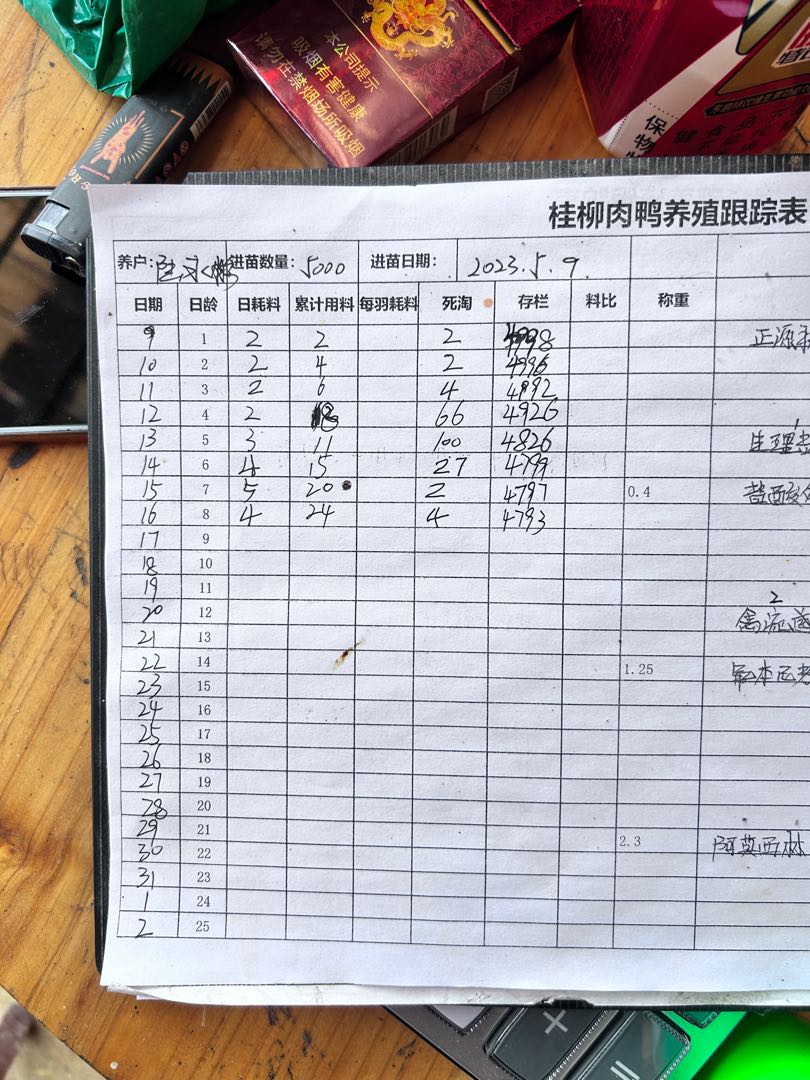 本公司提示
吸烟有害健康
请勿在禁烟场所吸烟
保
健食品不
桂柳肉鸭养殖跟踪表
养户: 进苗数量: 5000 进苗日期: 2023.5.9.
日期 日龄 日耗料 累计用料 每羽耗料 死淘 存栏 料比 称重
9 1 2 2 2 4998 正源
10 2 2 4 2 4996
11 3 2 6 4 4992
12 4 2 8 66 4926
13 5 3 11 100 4826 生理
14 6 4 15 27 4799
15 7 5 20 2 4797 0.4
16 8 4 24 4 4793
17 9
18 10
19 11
2
20 12 禽流
21 13
22 14
23 15 1.25
24 16
25 17
26 18
27 19
28 20
29 21
30 22 2.3 阿莫西林
31 23
1 24
2 25